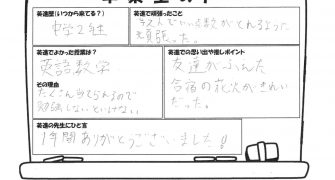 卒業生の声
英進歴(いつから来てる?)
中学2年
英進で頑張ったこと
とれるように
頑張った。
英進でよかった授業は?
英語 数学
その理由
たくさん当てられるので
勉強しないといけない
英進での思い出や推しポイント
友達がふえた
合宿の花火がきれい
だった。
英進の先生にひと言
1年間ありがとうございました!